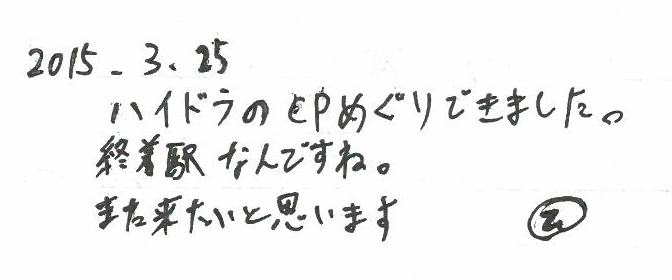 2015.3.25
ハイドラのCPめぐりできました。
終着駅なんですね。
また来たいと思います